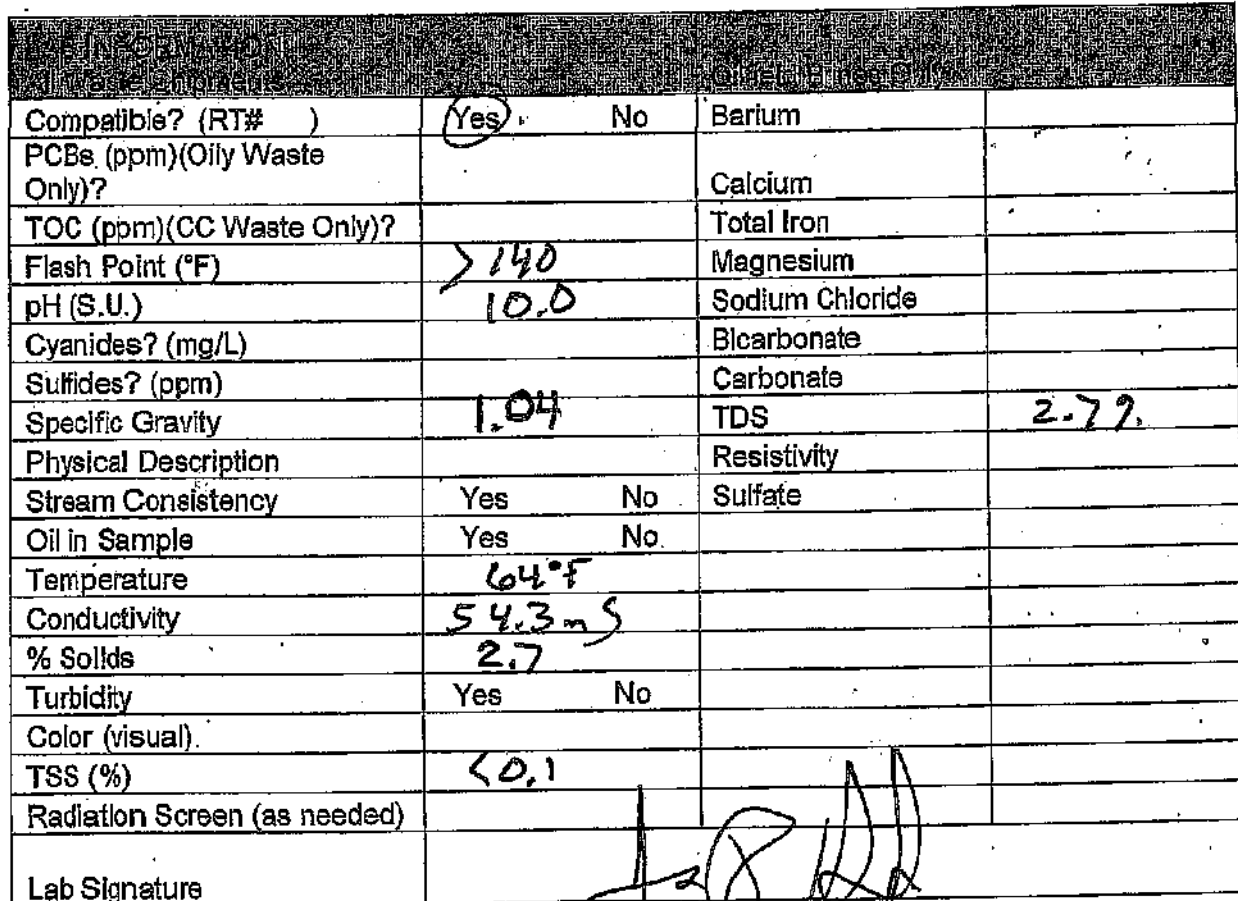 LAB INFORMATION
All Waste Shipments Oilfield Brines Only
Compatible? (RT# ) Yes No Barium
PCBs (ppm)(Oily Waste
Only)? Calcium
TOC (ppm)(CC Waste Only)? Total Iron
Flash Point (°F) >140 Magnesium
pH (S.U.) 10.0 Sodium Chloride
Cyanides? (mg/L) Bicarbonate
Sulfides? (ppm) Carbonate
Specific Gravity 1.04 TDS
Physical Description Resistivity
Stream Consistency Yes No Sulfate
Oil in Sample Yes No
Temperature 64°F
Conductivity 54.3 mS
% Solids 2.7
Turbidity Yes No
Color (visual).
TSS (%) <0.1
Radiation Screen (as needed)
Lab Signature